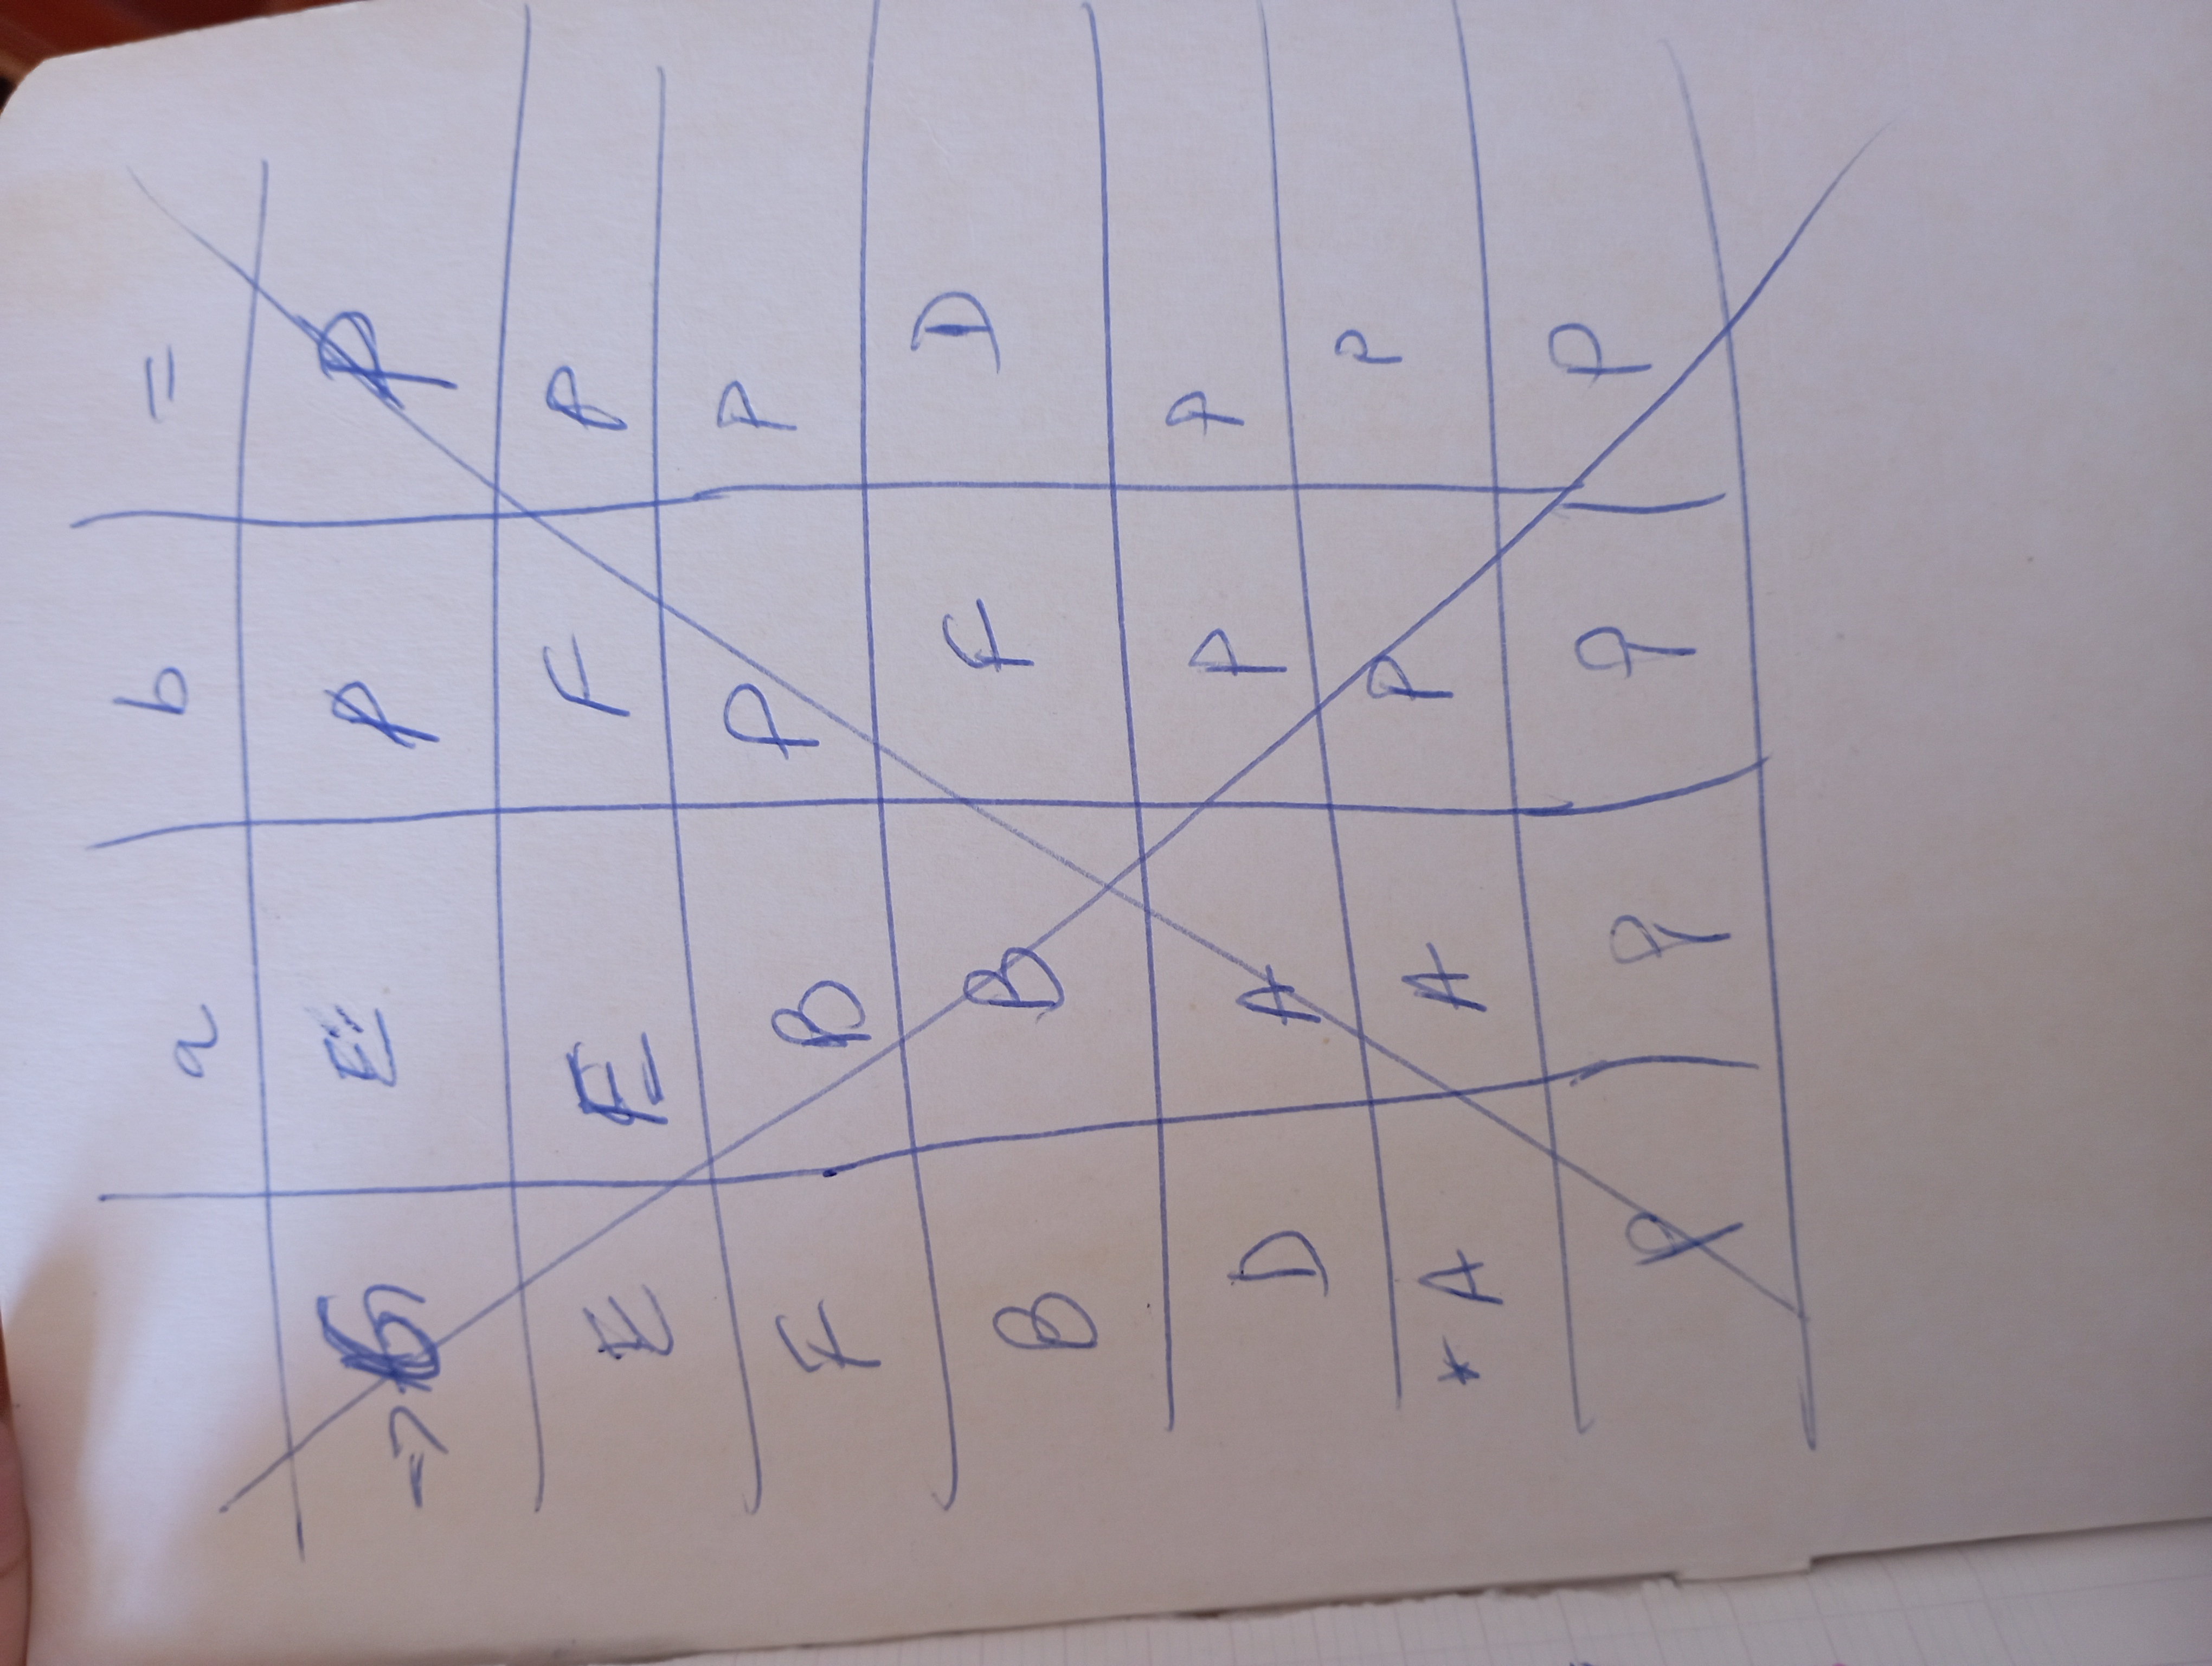 a b =
→ G E P P
E E F P
F B P P
B B F D
D A P P
* A A P P
P P P P